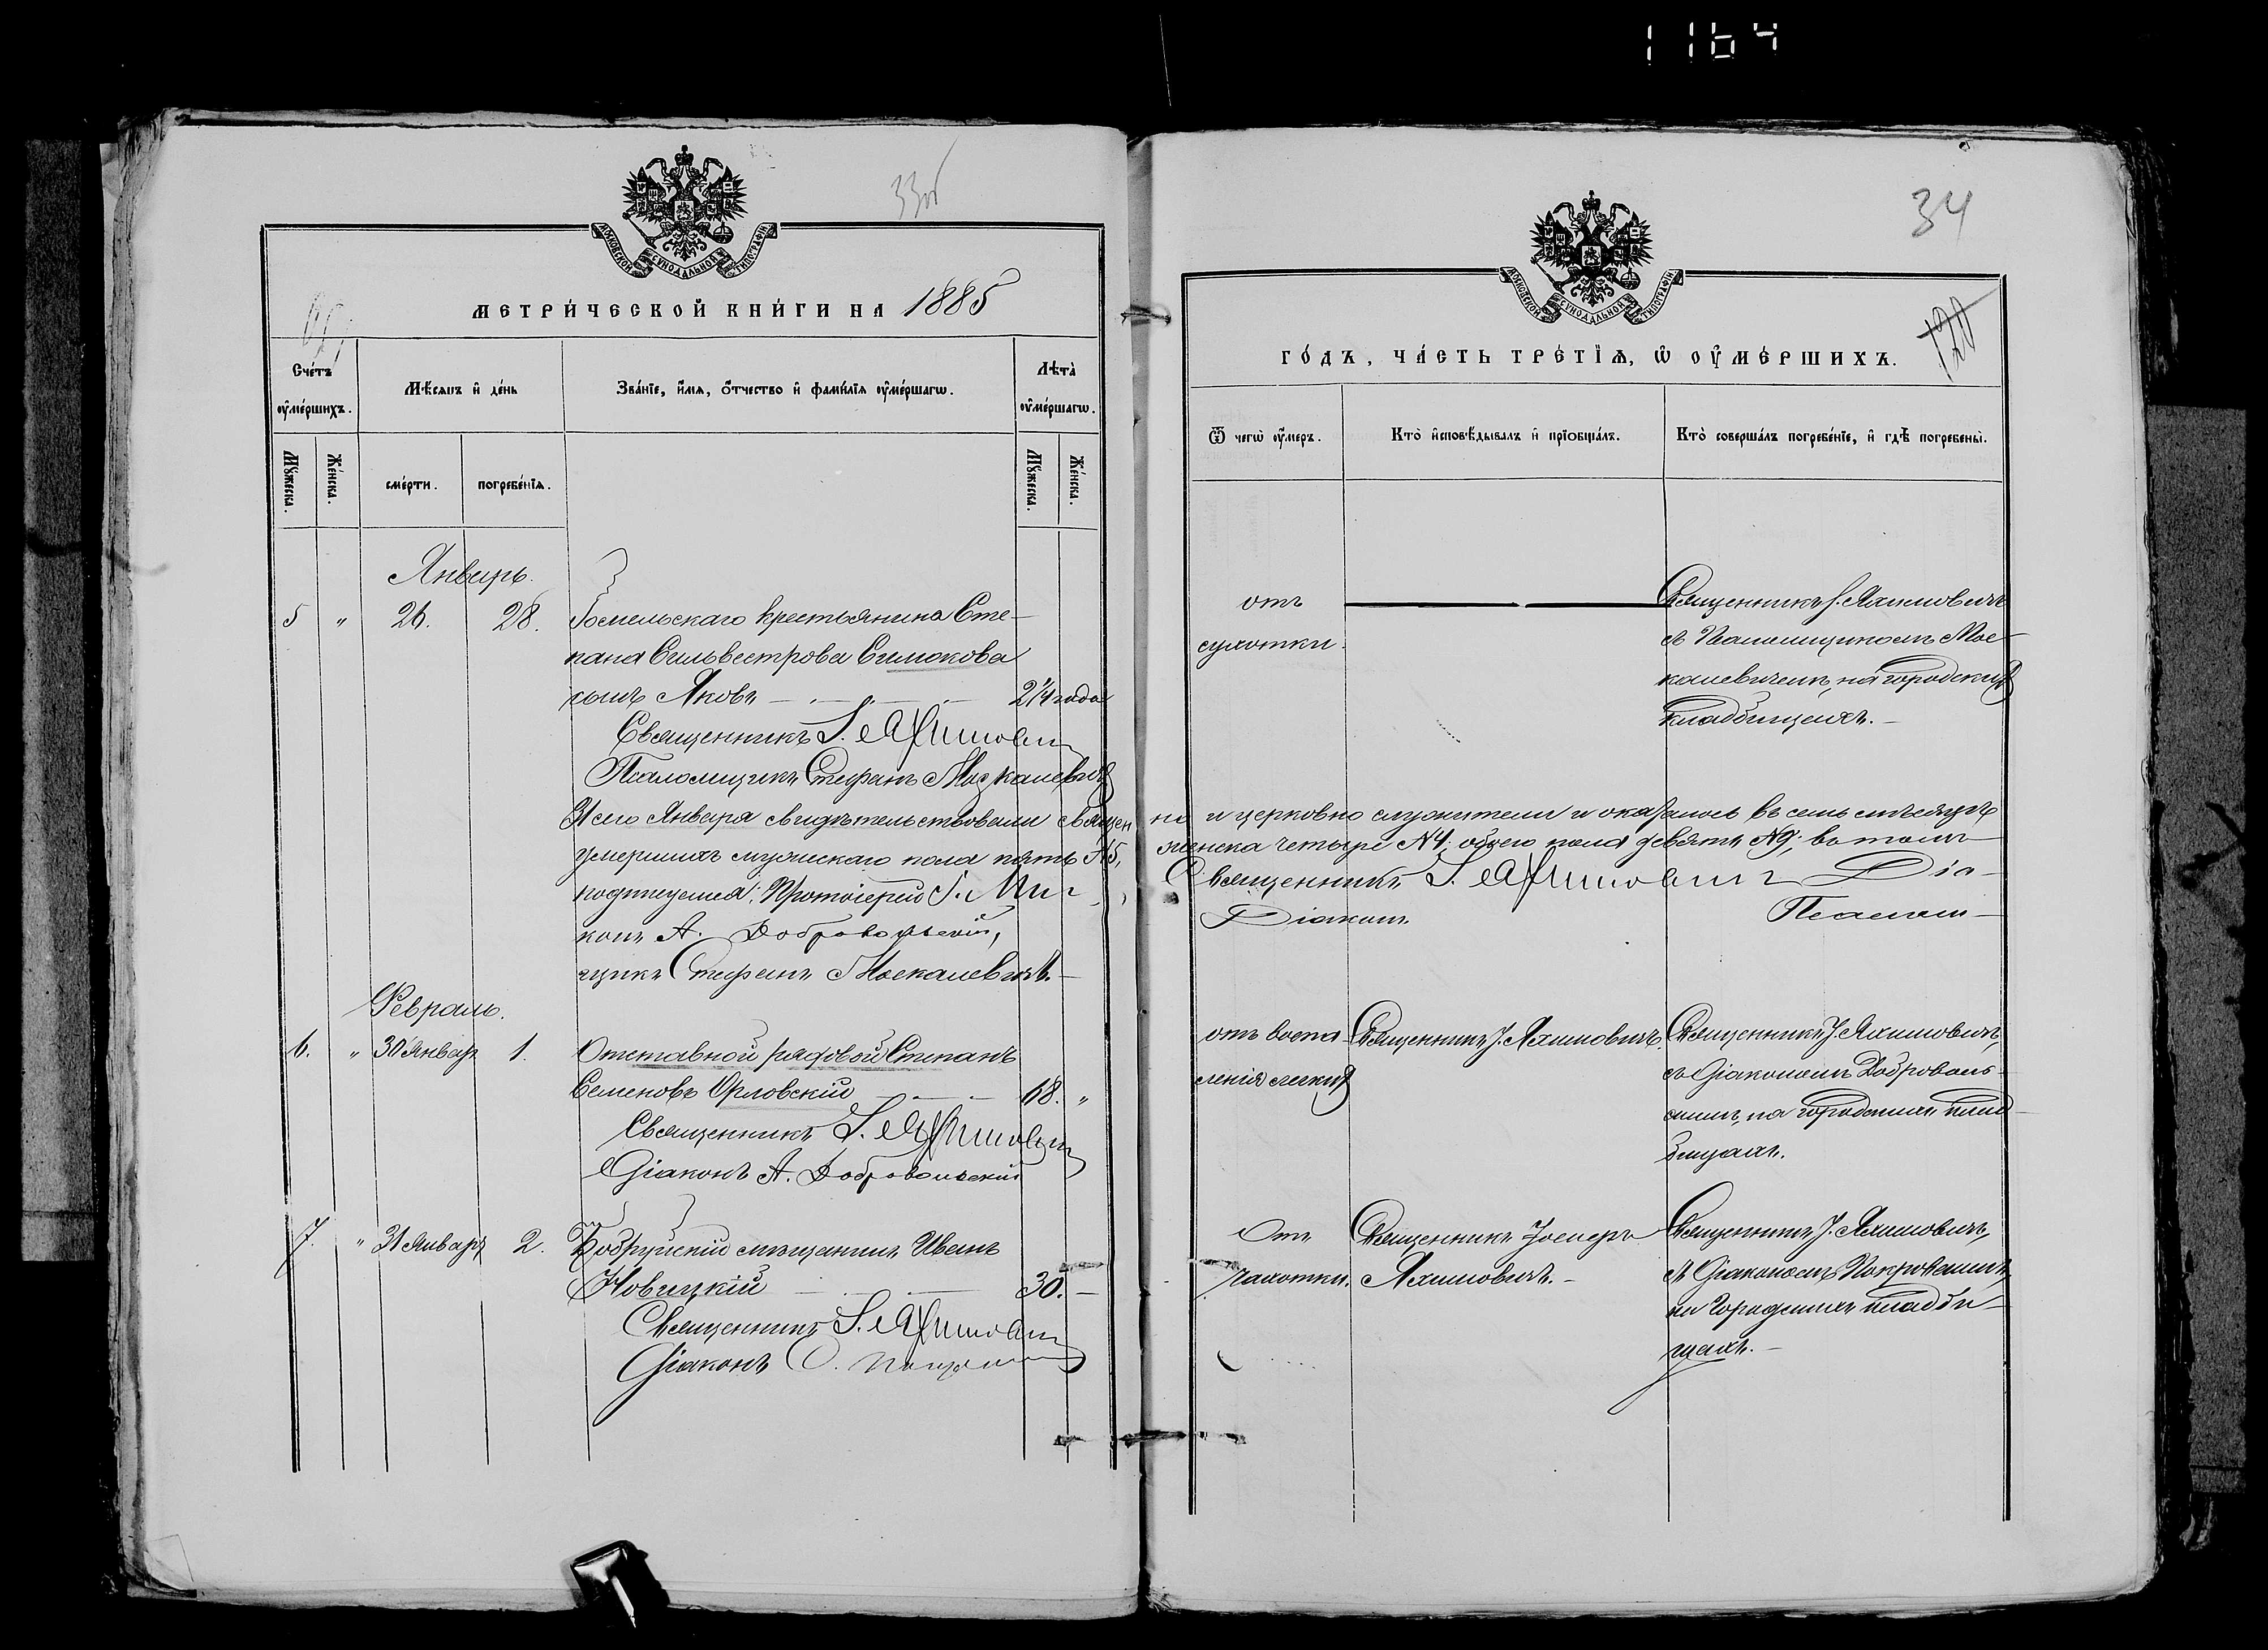 1164
33об
МОСКОВСКОЙ СѴНОДАЛЬНОЙ ТИПОГРАФІИ
МЕТРИ́ЧЕСКОЙ КНИ́ГИ НА 1885
Счётъ
ᲂу҆ме́ршихъ.
Мѣ́сяцъ и҆ де́нь
Зва́нїе, и҆́мѧ, ѻ҆́тчество и҆ фами́лїѧ ᲂу҆ме́ршагѡ.
Лѣта̀
ᲂу҆ме́ршагѡ.
Мꙋ́жеска.
Же́нска.
сме́рти.
погребе́нїѧ.
Мꙋ́жеска.
Же́нска.
Январь.
5 " 26. 28. Гомельскаго крестьянина Сте-
пана Сильвестрова Симокова
сынъ Яковъ 2 1/4 года
Священникъ І. Яхимовичъ
Псаломщикъ Стефанъ Москалевичъ
31 сего Января свидѣтельствовали священ
умершихъ мужескаго пола пять №5,
подтицемся: Протоіерей
конъ А. Добровольскій,
щикъ Стефанъ Москалевичъ.
Февраль.
6. " 30 Январ 1. Отставной рядовой Степанъ
Семеновъ Орловскій 68. "
Священникъ І. Яхимовичъ
Діаконъ А. Добровольскій
7. " 31 Январ 2. Бобруйскій мѣщанинъ Иванъ
Новицкій 30.
Священникъ І. Яхимовичъ
Діаконъ
34
МОСКОВСКОЙ СѴНОДАЛЬНОЙ ТИПОГРАФІИ
120
ГО́ДЪ, ЧА́СТЬ ТРЕ́ТЇѦ, Ѡ҆ ОУ҆МЕ́РШИХЪ.
Ѿ чегѡ̀ ᲂу҆́меръ.
Кто̀ и҆сповѣ́дывалъ и҆ прїѡбща́лъ.
Кто̀ соверша́лъ погребе́нїе, и҆ гдѣ̀ погребены̀.
отъ
сухотки.
Священникъ І. Яхимовичъ
съ Псаломщикомъ Мос-
калевичемъ, на городскихъ
кладбищахъ.
но и церковно служители и оказалось въ семъ мѣсяцѣ
женска четыре №4; обоего пола девять №9; въ томъ
Священникъ І. Яхимовичъ Діа-
Діаконъ Псалом-
отъ воспа- Священникъ І. Яхимовичъ. Священникъ І. Яхимовичъ,
ленія легкихъ съ Діакономъ Добровольс-
кимъ, на городскихъ клад-
бищахъ.
Отъ Священникъ Іосифъ Священникъ І. Яхимовичъ,
чахотки. Яхимовичъ. съ Діакономъ Покровскимъ,
на Городскихъ кладби-
щахъ.